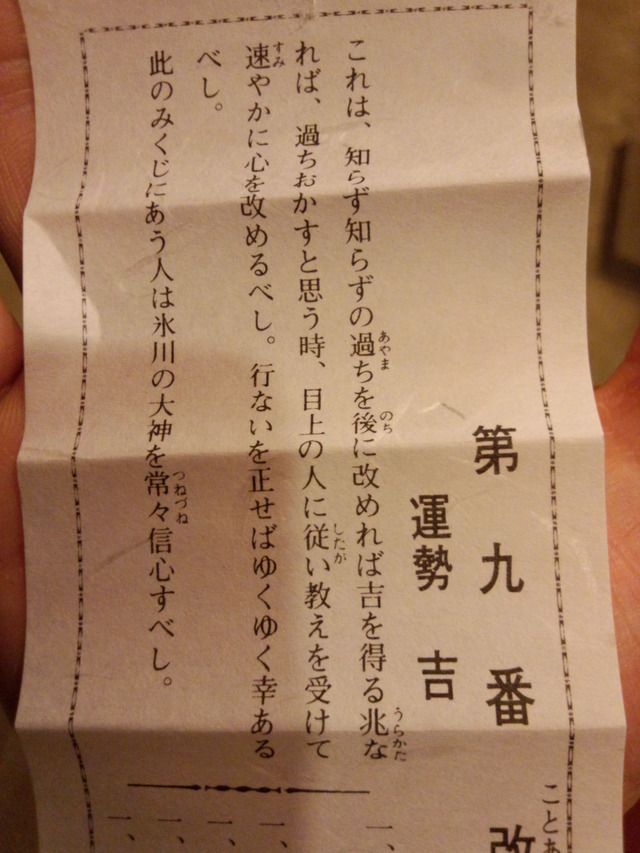 第九番
運勢 吉
これは、知らず知らずの過ちを後に改めれば吉を得る兆な
れば、過ちおかすと思う時、目上の人に従い教えを受けて
速やかに心を改めるべし。行ないを正せばゆくゆく幸ある
べし。
此のみくじにあう人は氷川の大神を常々信心すべし。
ことあ
改
一、
一、
一、
一、
一、